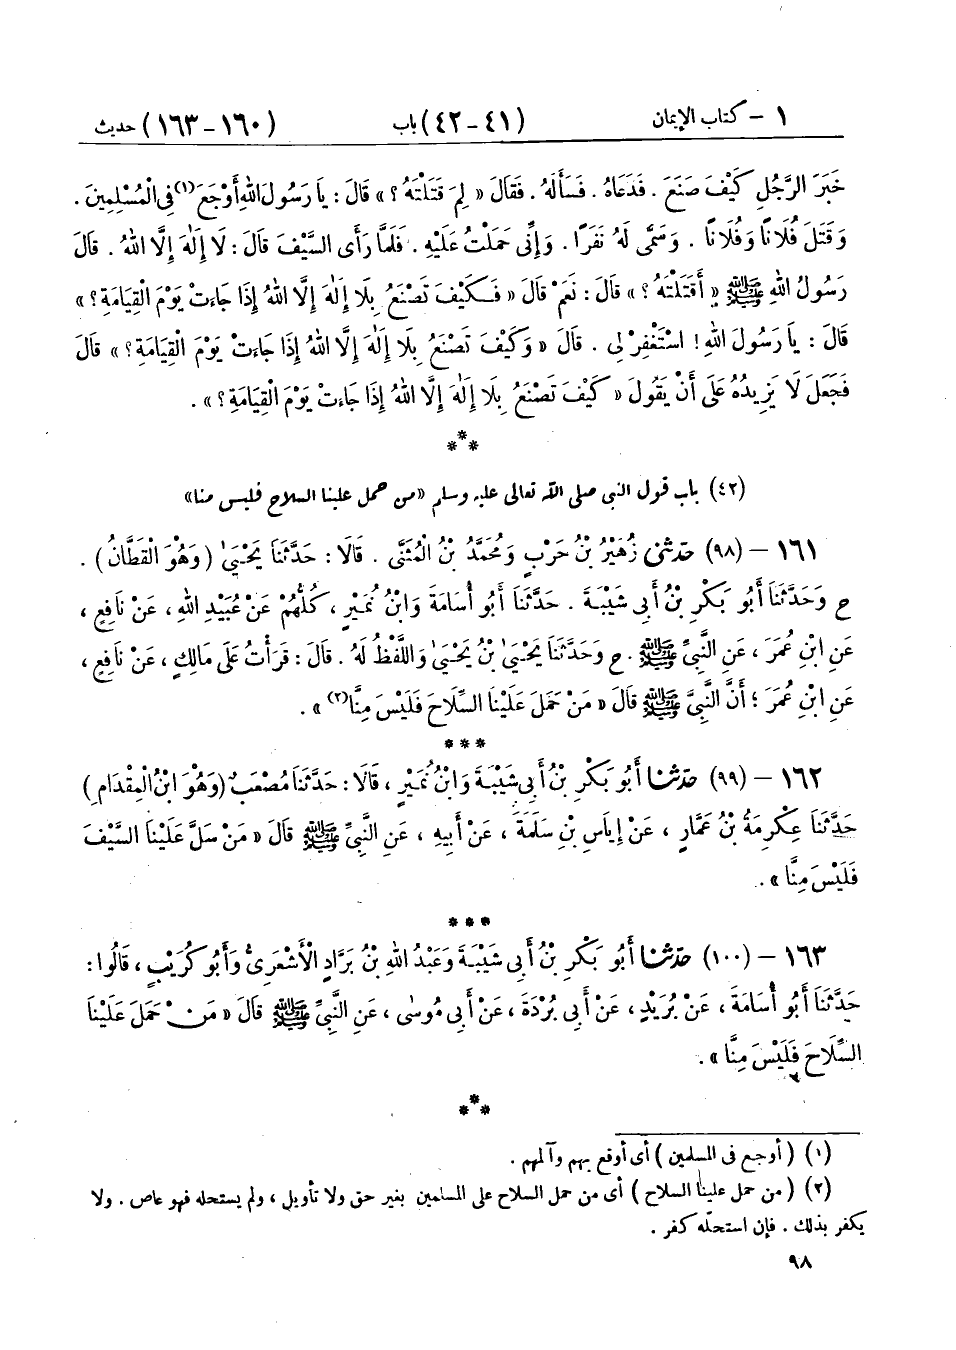 ١ – كتاب الإيمان (٤١ – ٤٢) باب (١٦٠ – ١٦٣) حديث
خَبَرَ الرَّجُلِ كَيْفَ صَنَعَ . فَدَعَاهُ . فَسَأَلَهُ . فَقَالَ « لِمَ قَتَلْتَهُ ؟ » قَالَ : يَا رَسُولَ اللهِ أَوْجَعَ (١) فِى الْمُسْلِمِينَ .
وَقَتَلَ فُلَانًا وَفُلَانًا . وَسَمَّى لَهُ نَفَرًا . وَإِنِّى حَمَلْتُ عَلَيْهِ . فَلَمَّا رَأَى السَّيْفَ قَالَ : لَا إِلَٰهَ إِلَّا اللهُ . قَالَ
رَسُولُ اللهِ ﷺ « أَقَتَلْتَهُ ؟ » قَالَ : نَعَمْ قَالَ « فَكَيْفَ تَصْنَعُ بِلَا إِلَٰهَ إِلَّا اللهُ إِذَا جَاءَتْ يَوْمَ الْقِيَامَةِ ؟ »
قَالَ : يَا رَسُولَ اللهِ ! اسْتَغْفِرْ لِى . قَالَ « وَكَيْفَ تَصْنَعُ بِلَا إِلَٰهَ إِلَّا اللهُ إِذَا جَاءَتْ يَوْمَ الْقِيَامَةِ ؟ » قَالَ
فَجَعَلَ لَا يَزِيدُهُ عَلَى أَنْ يَقُولَ « كَيْفَ تَصْنَعُ بِلَا إِلَٰهَ إِلَّا اللهُ إِذَا جَاءَتْ يَوْمَ الْقِيَامَةِ ؟ » .
***
(٤٢) باب قول النبى صلى الله تعالى عليه وسلم «من حمل علينا السلاح فليس منا»
١٦١ – (٩٨) حَدَّثَنِى زُهَيْرُ بْنُ حَرْبٍ وَمُحَمَّدُ بْنُ الْمُثَنَّى . قَالَا : حَدَّثَنَا يَحْيَىٰ (وَهُوَ الْقَطَّانُ) .
ح وَحَدَّثَنَا أَبُو بَكْرِ بْنُ أَبِى شَيْبَةَ . حَدَّثَنَا أَبُو أُسَامَةَ وَابْنُ نُمَيْرٍ ، كُلُّهُمْ عَنْ عُبَيْدِ اللهِ ، عَنْ نَافِعٍ ،
عَنِ ابْنِ عُمَرَ ، عَنِ النَّبِىِّ ﷺ . ح وَحَدَّثَنَا يَحْيَىٰ بْنُ يَحْيَىٰ وَاللَّفْظُ لَهُ . قَالَ : قَرَأْتُ عَلَى مَالِكٍ ، عَنْ نَافِعٍ ،
عَنِ ابْنِ عُمَرَ ؛ أَنَّ النَّبِىَّ ﷺ قَالَ « مَنْ حَمَلَ عَلَيْنَا السِّلَاحَ فَلَيْسَ مِنَّا (٢) » .
***
١٦٢ – (٩٩) حَدَّثَنَا أَبُو بَكْرِ بْنُ أَبِى شَيْبَةَ وَابْنُ نُمَيْرٍ ، قَالَا : حَدَّثَنَا مُصْعَبٌ (وَهُوَ ابْنُ الْمِقْدَامِ)
حَدَّثَنَا عِكْرِمَةُ بْنُ عَمَّارٍ ، عَنْ إِيَاسِ بْنِ سَلَمَةَ ، عَنْ أَبِيهِ ، عَنِ النَّبِىِّ ﷺ قَالَ « مَنْ سَلَّ عَلَيْنَا السَّيْفَ
فَلَيْسَ مِنَّا » .
***
١٦٣ – (١٠٠) حَدَّثَنَا أَبُو بَكْرِ بْنُ أَبِى شَيْبَةَ وَعَبْدُ اللهِ بْنُ بَرَّادٍ الْأَشْعَرِىُّ وَأَبُو كُرَيْبٍ ، قَالُوا :
حَدَّثَنَا أَبُو أُسَامَةَ ، عَنْ بُرَيْدٍ ، عَنْ أَبِى بُرْدَةَ ، عَنْ أَبِى مُوسَى ، عَنِ النَّبِىِّ ﷺ قَالَ « مَنْ حَمَلَ عَلَيْنَا
السِّلَاحَ فَلَيْسَ مِنَّا » .
***
(١) ( أوجع فى المسلمين ) أى أوقع بهم وآلمهم .
(٢) ( من حمل علينا السلاح ) أى من حمل السلاح على المسلمين بغير حق ولا تأويل ، ولم يستحله فهو عاص . ولا
يكفر بذلك . فإن استحلّه كفر .
٩٨